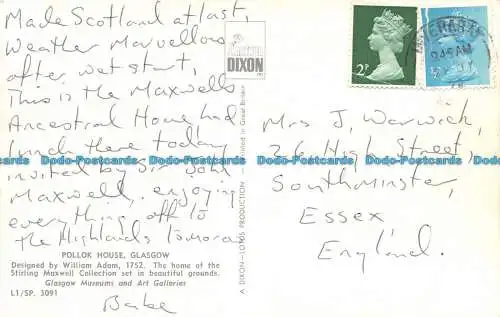 Made Scotland at last,
Weather Marvellous
after wet start,
This is the Maxwells
Ancestral Home had
lunch there today
invited by Sir John
Maxwell, enjoying
everything off to
the Highlands tomorrow
POLLOK HOUSE, GLASGOW
Designed by William Adam, 1752. The home of the
Stirling Maxwell Collection set in beautiful grounds.
Glasgow Museums and Art Galleries
L1/SP. 3091
DIXON
A DIXON—LOTUS PRODUCTION
Printed in Great Britain
2P
945 AM
Mrs J, Warwick,
26 High Street,
Southminster,
Essex
England.
Dodo-Postcards Dodo-Postcards Dodo-Postcards Dodo-Postcards